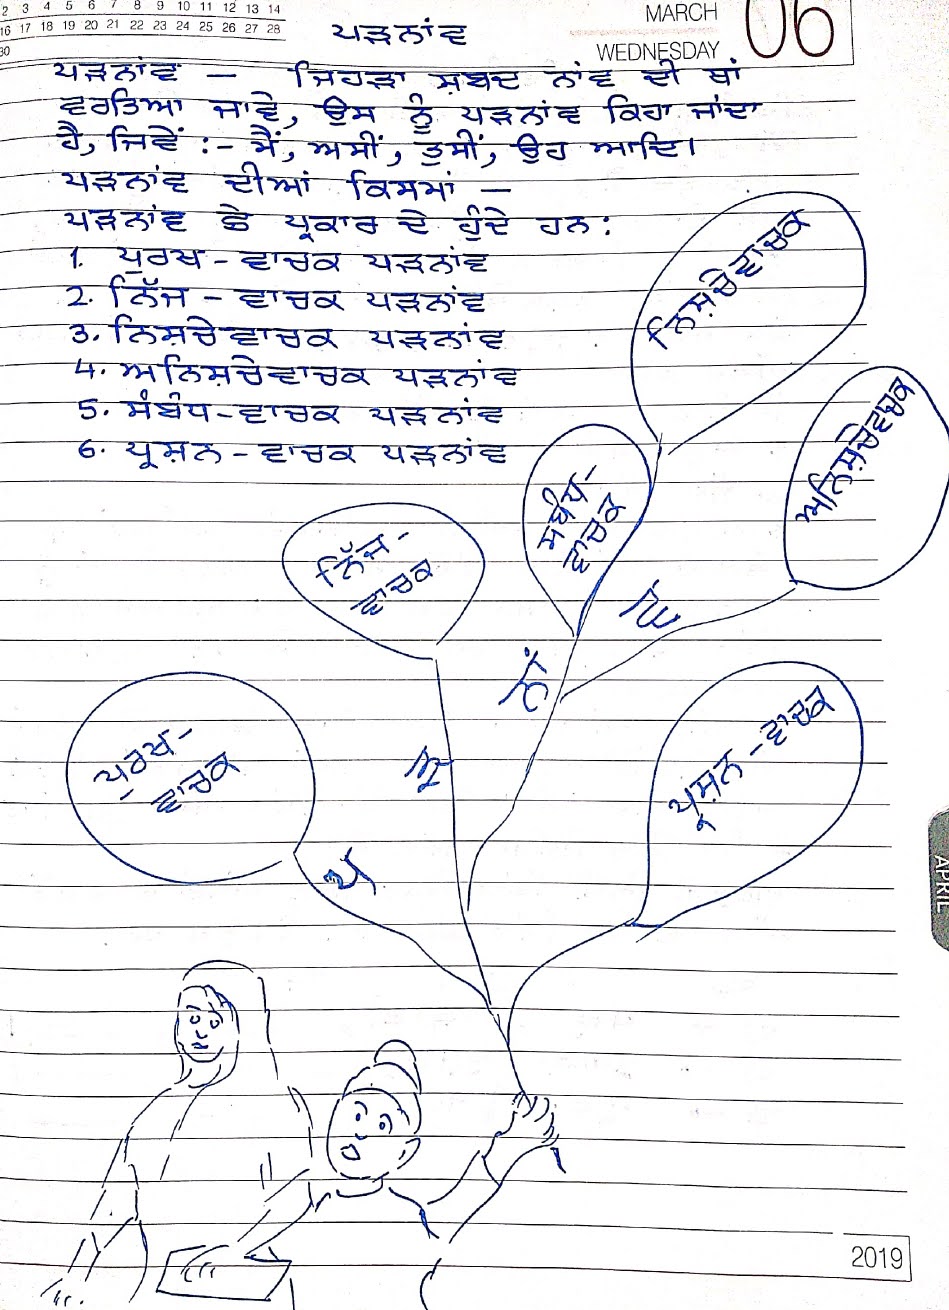 2 3 4 5 6 7 8 9 10 11 12 13 14
16 17 18 19 20 21 22 23 24 25 26 27 28
30
MARCH
WEDNESDAY
06
ਪੜਨਾਂਵ
ਪੜਨਾਂਵ – ਜਿਹੜਾ ਸ਼ਬਦ ਨਾਂਵ ਦੀ ਥਾਂ
ਵਰਤਿਆ ਜਾਵੇ, ਉਸ ਨੂੰ ਪੜਨਾਂਵ ਕਿਹਾ ਜਾਂਦਾ
ਹੈ, ਜਿਵੇਂ :- ਮੈਂ, ਅਸੀਂ, ਤੁਸੀਂ, ਉਹ ਆਦਿ।
ਪੜਨਾਂਵ ਦੀਆਂ ਕਿਸਮਾਂ –
ਪੜਨਾਂਵ ਛੇ ਪ੍ਰਕਾਰ ਦੇ ਹੁੰਦੇ ਹਨ:
1. ਪੁਰਖ - ਵਾਚਕ ਪੜਨਾਂਵ
2. ਨਿੱਜ - ਵਾਚਕ ਪੜਨਾਂਵ
3. ਨਿਸ਼ਚੇਵਾਚਕ ਪੜਨਾਂਵ
4. ਅਨਿਸ਼ਚੇਵਾਚਕ ਪੜਨਾਂਵ
5. ਸੰਬੰਧ-ਵਾਚਕ ਪੜਨਾਂਵ
6. ਪ੍ਰਸ਼ਨ - ਵਾਚਕ ਪੜਨਾਂਵ
ਨਿਸ਼ਚੇਵਾਚਕ
ਅਨਿਸ਼ਚੇਵਾਚਕ
ਸਬੰਧ-
ਵਾਚਕ
ਨਿੱਜ -
ਵਾਚਕ
ਵ
ਨਾਂ
ਪੁਰਖ -
ਵਾਚਕ
ਪ੍ਰਸ਼ਨ - ਵਾਚਕ
ੜ
ਪ
APRIL
2019